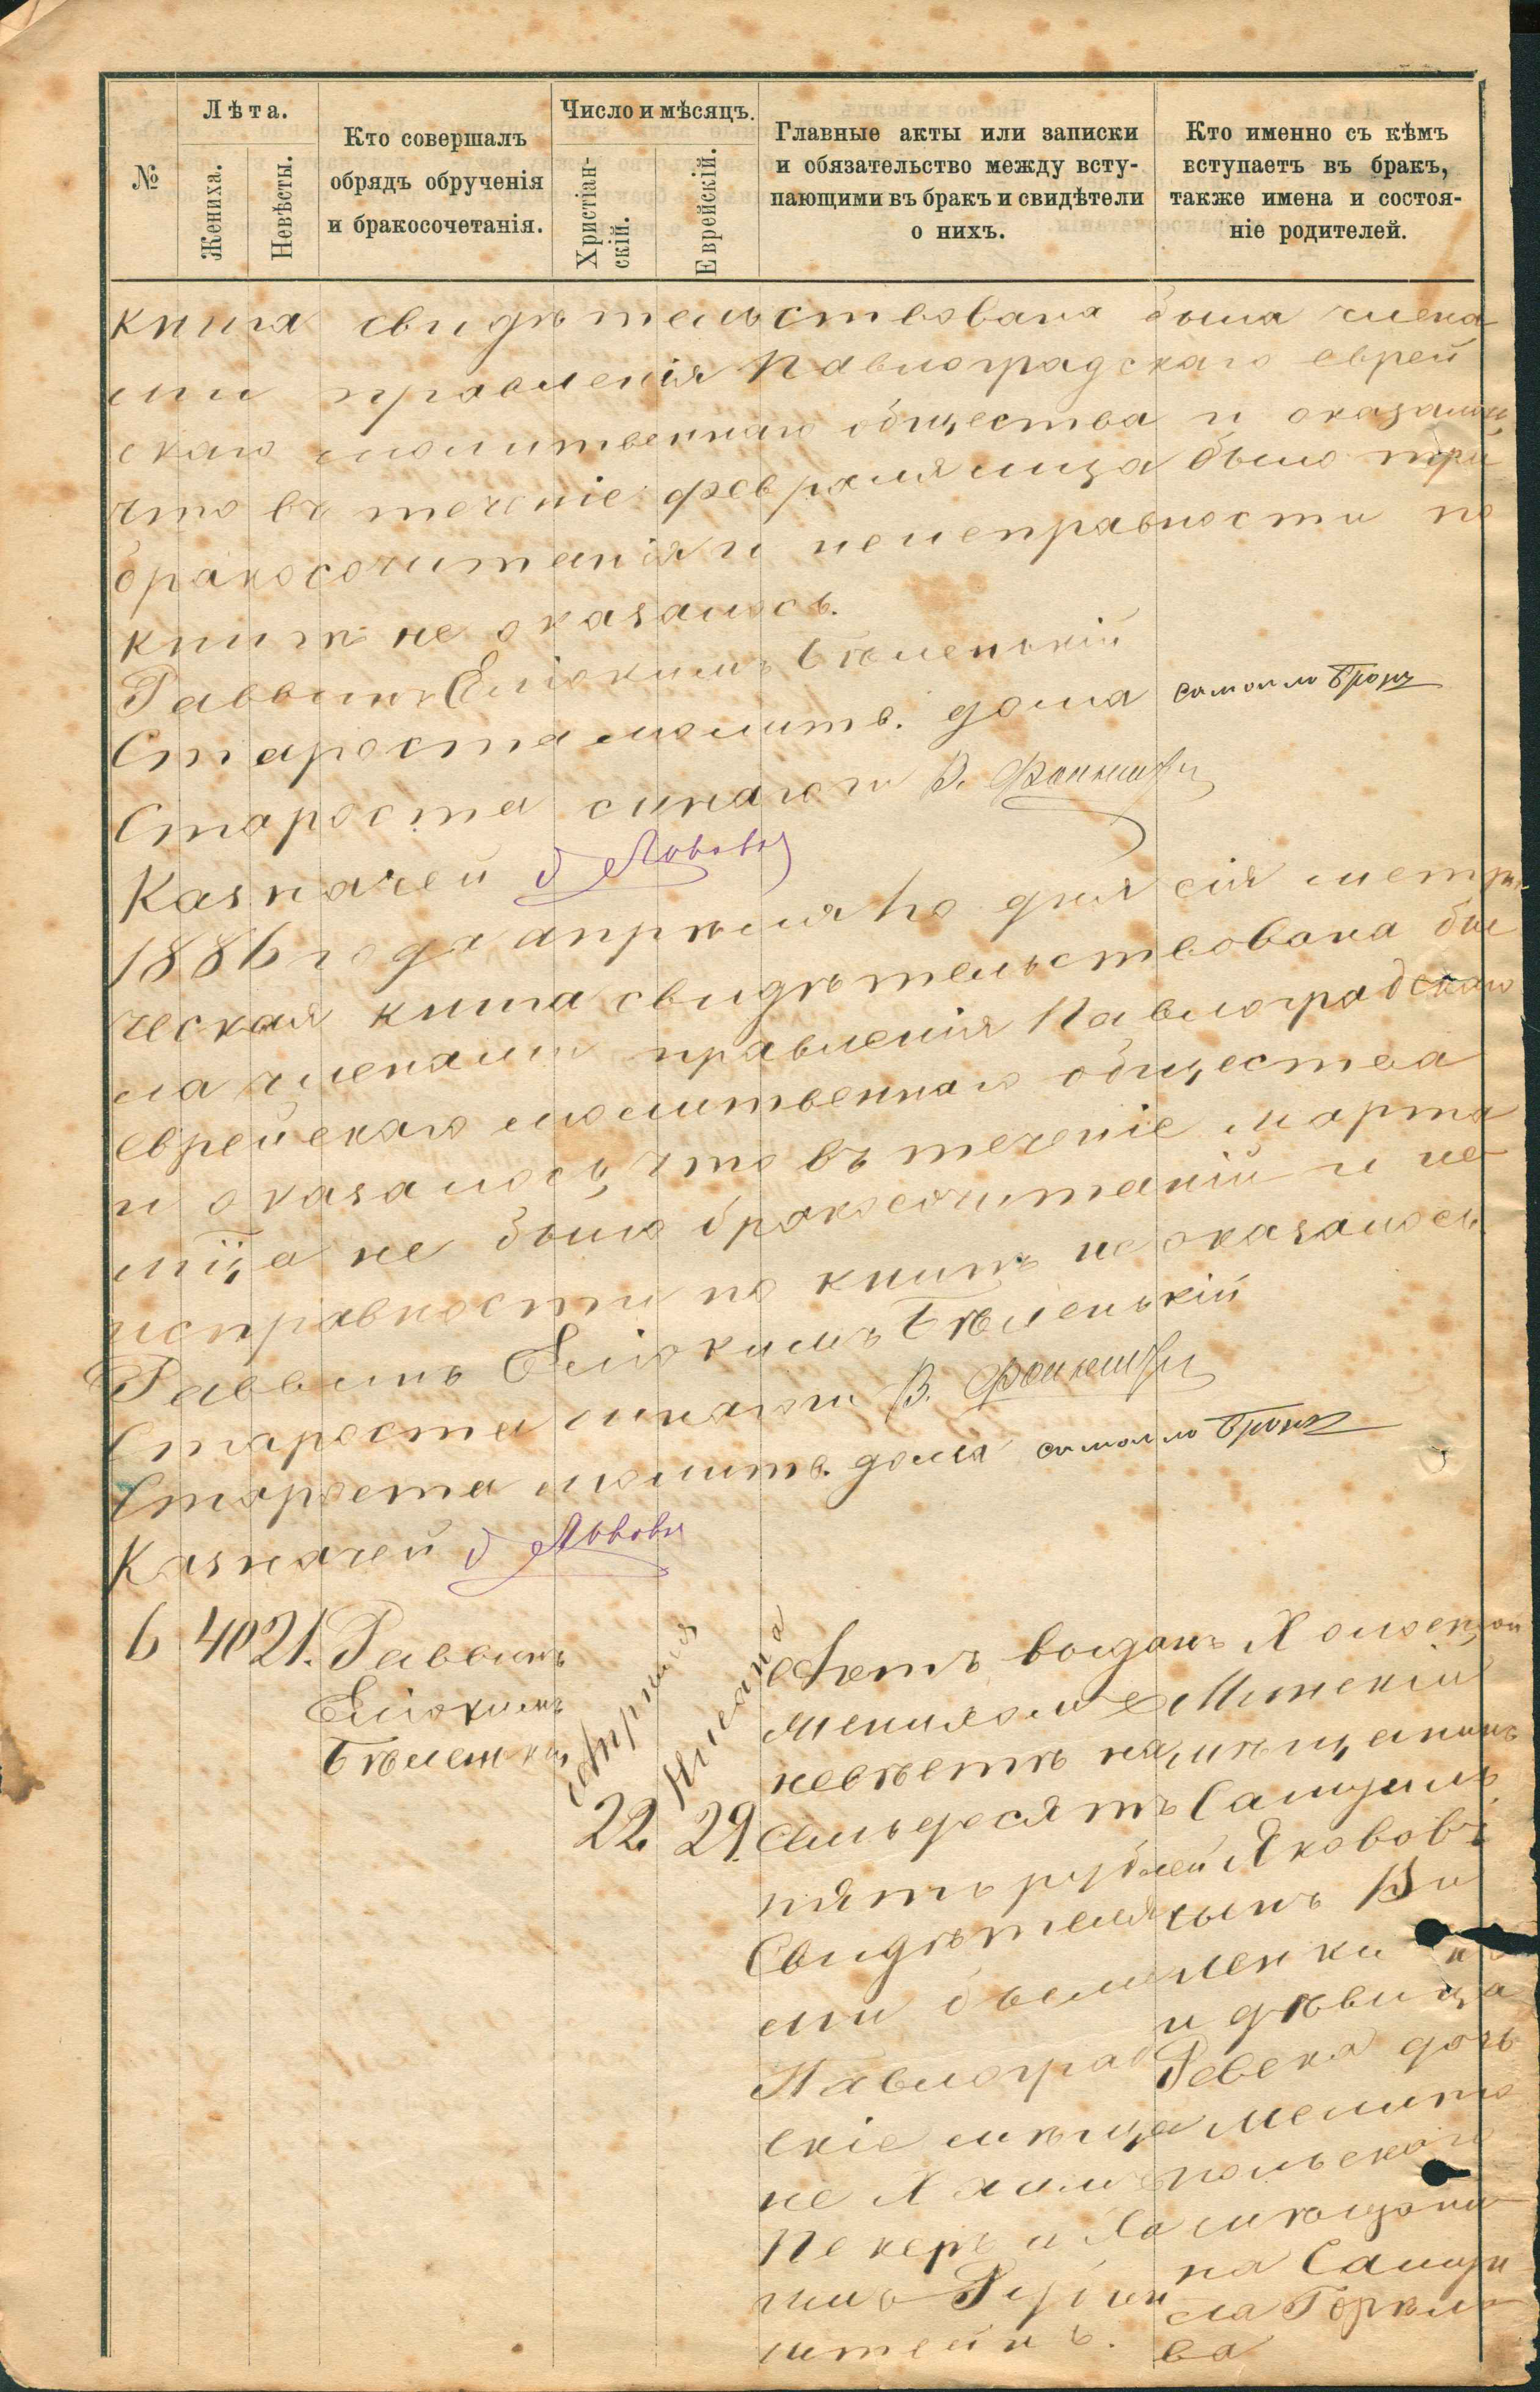 №
Лѣта.
Жениха.
Невѣсты.
Кто совершалъ
обрядъ обрученія
и бракосочетанія.
Число и мѣсяцъ.
Христіан-
скій.
Еврейскій.
Главные акты или записки
и обязательство между всту-
пающими въ бракъ и свидѣтели
о нихъ.
Кто именно съ кѣмъ
вступаетъ въ бракъ,
также имена и состоя-
ніе родителей.
книга свидѣтельствована была члена
ми правленія Павлоградскаго еврей
скаго молитвеннаго общества и оказалось
что въ теченіе февраля мца было три
бракосочитанія и неисправности по
книгѣ не оказалось.
Раввинъ Еліокимъ Бѣленькій
Староста молитв. дома
Староста синагоги В.
Казначей
1886 года апрѣля 1го дня сія метри
ческая книга свидѣтельствована бы
ла членами правленія Павлоградскаго
еврейскаго молитвеннаго общества
и оказалось, что въ теченіе марта
мца не было бракосочитаній и не
исправности по книгѣ не оказалось
Раввинъ Еліокимъ Бѣленькій
Староста синагоги В.
Староста молитв. дома
Казначей
6
40
21.
Раввинъ
Еліокимъ
Бѣленькій
Апрѣля
22
Нисана
29.
Актъ выданъ
невѣстѣ на
Семьдесятъ
пять рублей
Свидѣтеля
ми были
Павлоград
скіе мѣща
не Хаимъ
Пекеръ и Ха
имъ Рубин
штейнъ.
Холостой
Минскій
мѣщанинъ
Самуилъ
Яковов
сынъ Ви
ленки
и дѣвица
Ревека дочь
Мелито
польскаго
мѣщани
на Самуи
ла
ва